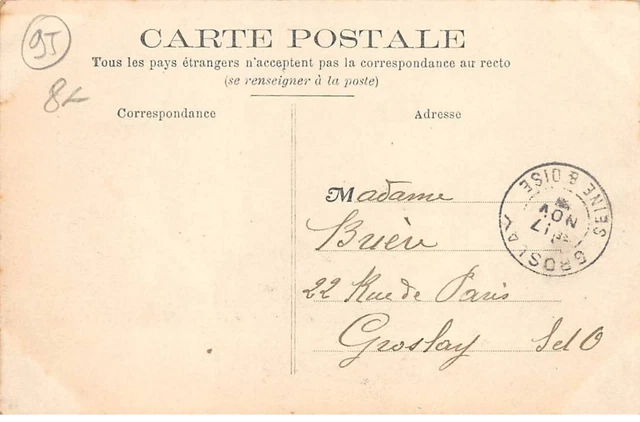 95
8
CARTE POSTALE
Tous les pays étrangers n'acceptent pas la correspondance au recto
(se renseigner à la poste)
Correspondance
Adresse
Madame
Brière
22 Rue de Paris
Groslay S et O
GROSLAY
SEINE & OISE
17
NOV